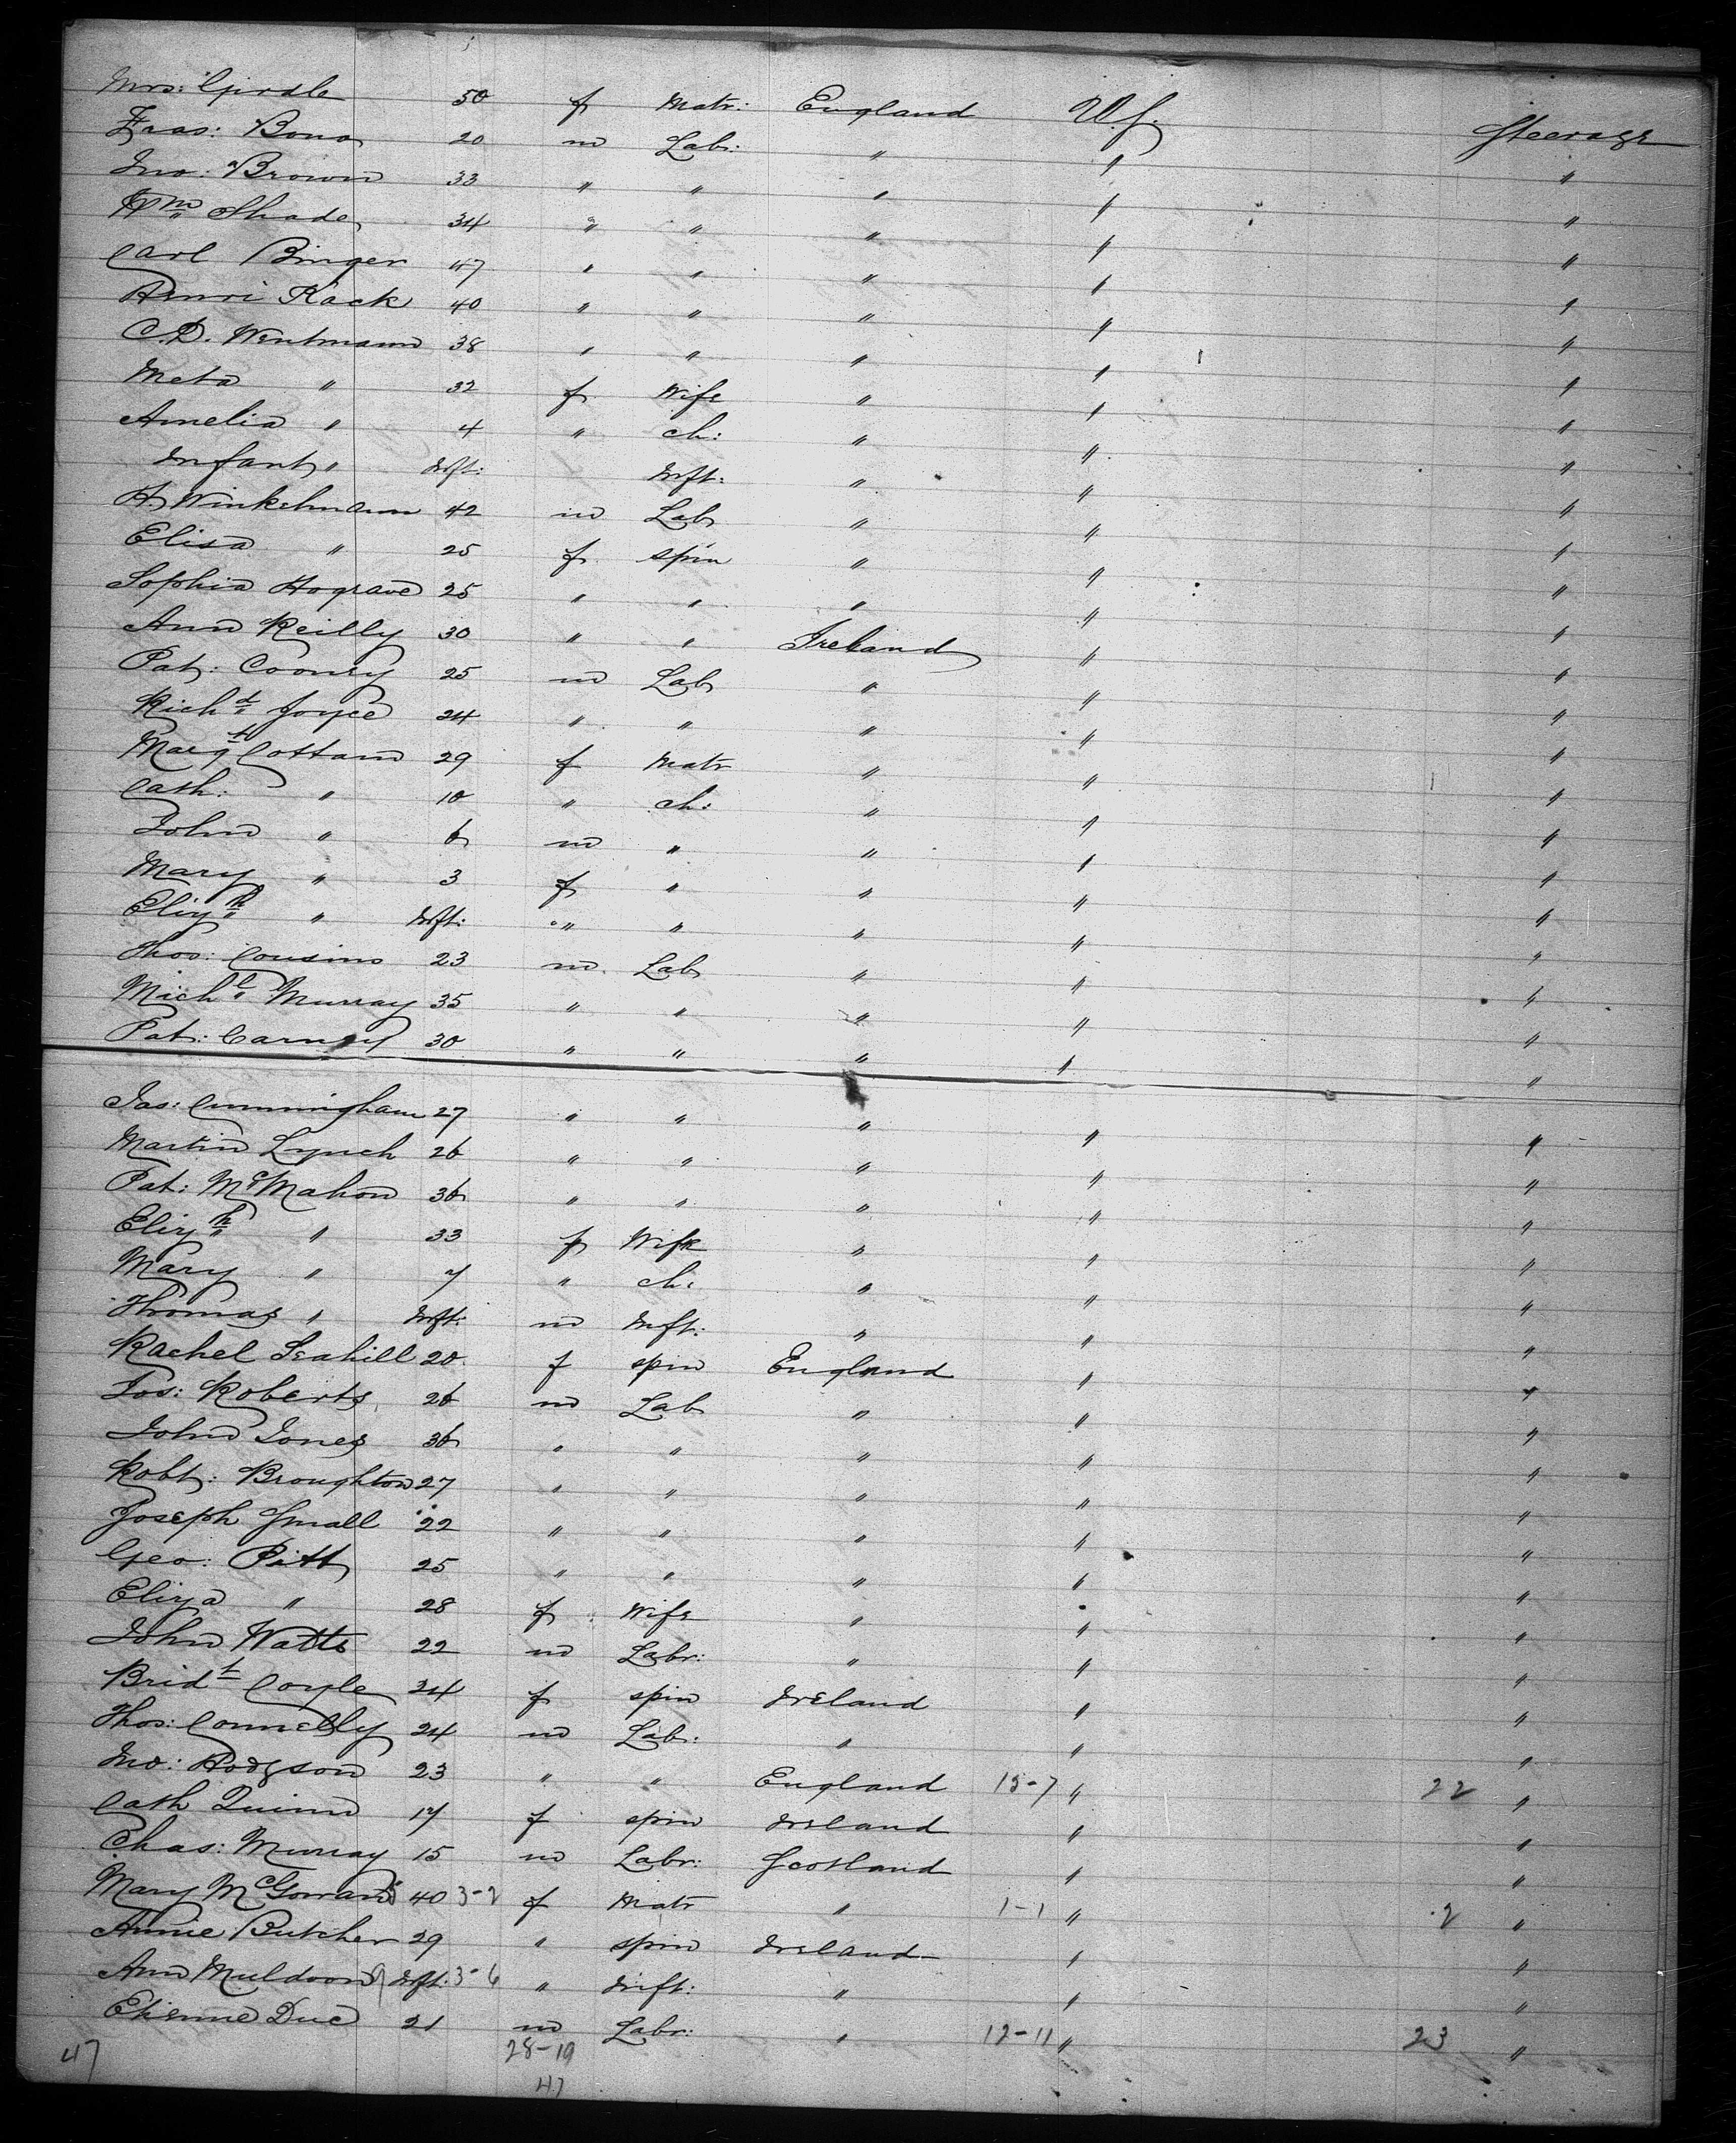 Mrs: Girdle 50 f Matr: England U.S. Steerage
Bono 20 m Labr: " " "
Jno: Brown 33 " " " " "
Wm Shade 34 " " " " "
Carl Binger 47 " " " " "
Henri Rack 40 " " " " "
C.D. Wentmann 38 " " " " "
Meta " 32 f Wife " " "
Amelia " 4 " ch: " " "
Infant " Inft: Inft: " " "
H. Winkelmann 42 m Lab " " "
Elisa " 25 f spin " " "
Sophia Hograve 25 " " " " "
Ann Reilly 30 " " Ireland " "
Pat: Cooney 25 m Lab " " "
Richd Joyce 24 " " " " "
Margt Cottam 29 f Matr " " "
Cath: " 10 " ch: " " "
John " 6 m " " " "
Mary " 3 f " " " "
Elizh " Inft: " " " " "
Thos: Cousins 23 m Lab " " "
Michl Murray 35 " " " " "
Pat: Carney 30 " " " " "
Jas: Cunningham 27 " " " " "
Martin Lynch 26 " " " " "
Pat: McMahon 36 " " " " "
Elizh " 33 f Wife " " "
Mary " 7 " ch: " " "
Thomas " Inft: m Inft: " " "
Rachel Leahill 20 f spin England " "
Jos: Roberts 26 m Lab " " "
John Jones 36 " " " " "
Robt: Broughton 27 " " " " "
Joseph Small 22 " " " " "
Geo: Pitt 25 " " " " "
Eliza " 28 f Wife " " "
John Watts 22 m Labr: " " "
Bridt Coyle 24 f spin Ireland " "
Thos: Connelly 24 m Lab: " " "
Jno: Hodgson 23 " " England 15-7 " 22 "
Cath Quinn 17 f spin Ireland " "
Chas: Murray 15 m Labr: Scotland " "
Mary McGowan 40 3-2 f Matr " 1-1 " 2 "
Annie Butcher 29 " spin Ireland " "
Ann Muldoon 9 Inft. 3-6 " Inft: " " "
Etienne Duc 21 m Labr: " 12-11 " 23 "
47 28-19
47